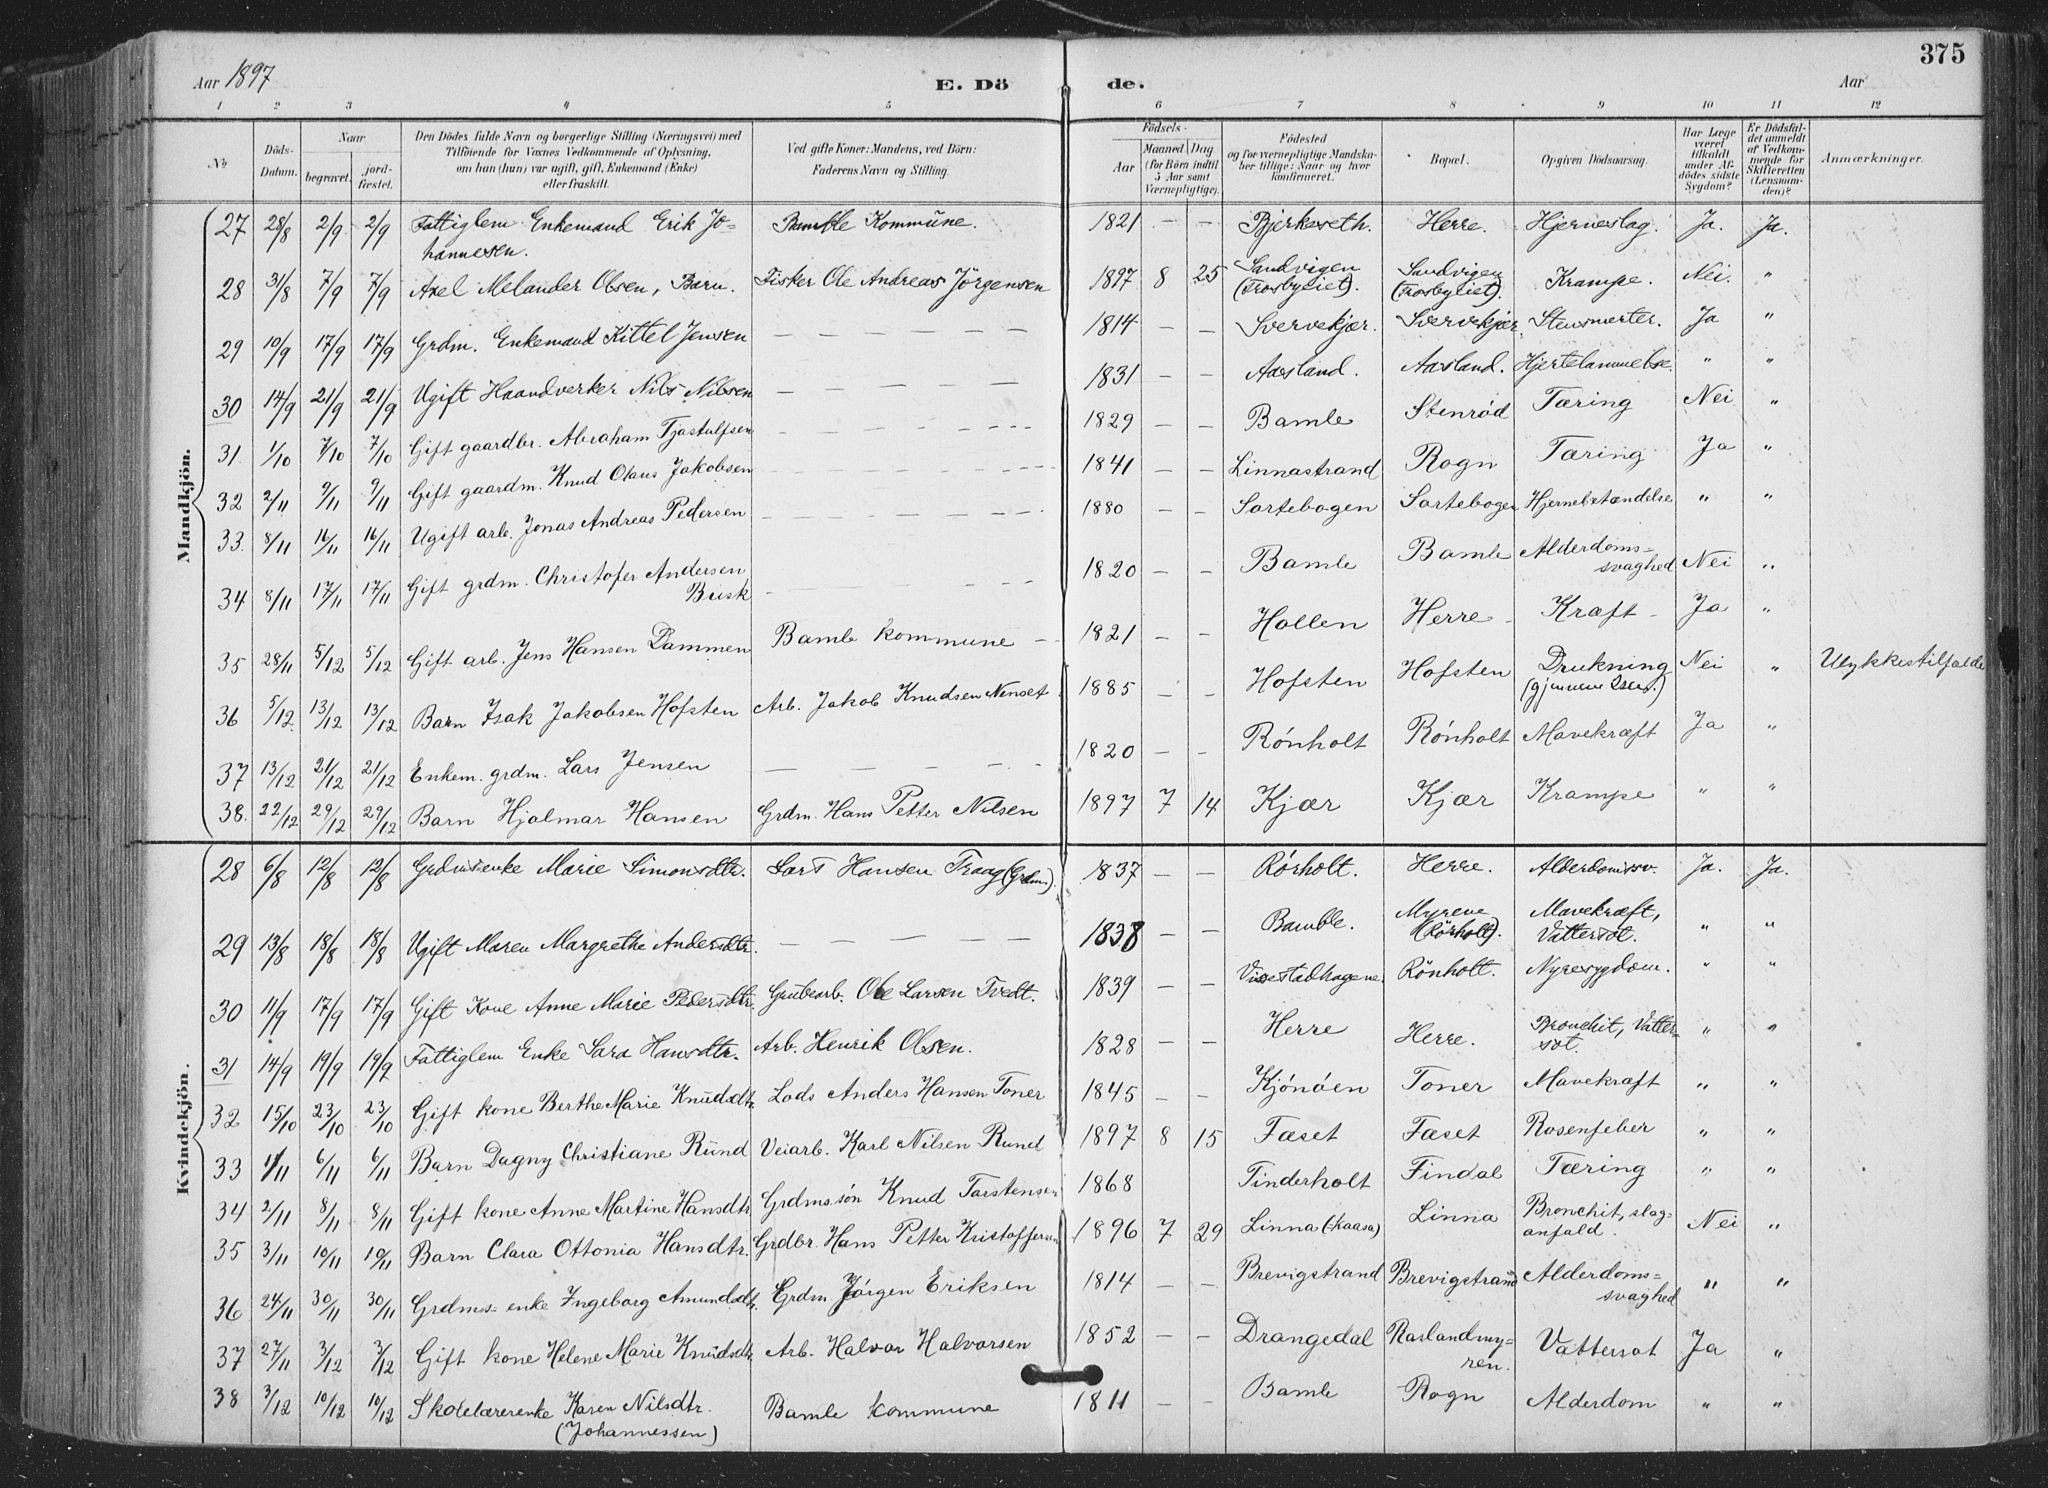 375
Aar 1897
E. Dö
de.
Aar
1 2 3 4 5 6 7 8 9 10 11 12
No
Döds-Datum.
Naar
begravet.
jord-fæstet.
Den Dödes fulde Navn og borgerlige Stilling (Næringsvei) med
Tilföiende for Voxnes Vedkommende af Oplysning,
om han (hun) var ugift, gift, Enkemand (Enke)
eller fraskilt.
Ved gifte Koner: Mandens, ved Börn:
Faderens Navn og Stilling.
Födsels-
Aar
Maaned Dag
(for Börn indtil
5 Aar samt
Værnepligtige).
Födested
og for værnepligtige Mandska-
ber tillige: Naar og hvor
konfirmeret.
Bopæl.
Opgiven Dödsaarsag.
Har Læge
været
tilkaldt
under Af-
dödes sidste
Sygdom?
Er Dödsfal-
det anmeldt
af Vedkom-
mende for
Skifteretten
(Lensman-
den)?
Anmærkninger.
Mandkjön.
27 28/8 2/9 2/9 Fattiglem Enkemand Erik Jo- Bamble Kommune. 1821 — — Bjerkeseth. Herre. Hjerneslag. Ja. Ja.
hannesen.
28 31/8 7/9 7/9 Axel Melander Olsen, Barn. Fisker Ole Andreas Jörgensen 1897 8 25 Sandvigen Sandvigen Krampe. Nei. "
(Trosbyeiet). (Trosbyeiet).
29 10/9 17/9 17/9 Grdm. Enkemand Kittel Jensen — — — 1814 — — Svervekjær. Svervekjær. Stensmerter. Ja "
30 14/9 21/9 21/9 Ugift Haandverker Nils Nilsen — — — 1831 — — Aasland. Aasland. Hjertelammelse. " "
31. 1/10 7/10 7/10 Gift gaardbr. Abraham Tjostulfsen — — — 1829 — — Bamle Stenrød Tæring Nei "
32 2/11 9/11 9/11 Gift gaardm. Knud Olaus Jakobsen — — — 1841 — — Linnastrand Rogn Tæring Ja "
33. 8/11 16/11 16/11 Ugift arb. Jonas Andreas Pedersen — — — 1880 — — Sortebogen Sortebogen Hjernebetændelse " "
34 8/11 17/11 17/11 Gift grdm. Christofer Andersen — — — 1820 — — Bamle Bamle Alderdoms= Nei "
Busk svaghed
35 28/11 5/12 5/12 Gift arb. Jens Hansen Dammen Bamle kommune — 1821 — — Hollen Herre Kræft Ja "
36 5/12 13/12 13/12 Barn Isak Jakobsen Hofsten Arb. Jakob Knudsen Nenset 1885 — — Hofsten Hofsten Drukning Nei " Ulykkestilfælde
(gjennem Isen.)
37 13/12 21/12 21/12 Enkem. grdm. Lars Jensen — — — 1820 — — Rónholt Rónholt Mavekræft Ja "
38. 22/12 29/12 29/12 Barn Hjalmar Hansen Grdm. Hans Petter Nilsen 1897 7 14 Kjær Kjær Krampe " "
Kvindekjön.
28 6/8 12/8 12/8 Grdmsenke Marie Simonsdtr. Lars Hansen Traag (Grdm.). 1837 — — Rórholt. Herre. Alderdomssv. Ja. Ja.
29 13/8 18/8 18/8 Ugift Maren Margrethe Andersdtr. — — — 1838 — — Bamble. Myrene Mavekræft, " "
(Rörholt). Vattersot.
30 11/9 17/9 17/9 Gift Kone Anne Marie Pedersdtr. Grubearb. Ole Larsen Tvedt. 1839 — — Rönholt. Nyresygdom. " "
31 14/9 19/9 19/9 Fattiglem Enke Sara Hansdtr. Arb. Henrik Olsen. 1828 — — Herre Herre. Bronchit, Vatter- " "
sot.
32 15/10 23/10 23/10 Gift kone Berthe Marie Knudsdtr. Lods Anders Hansen Toner 1845 — — Kjónóen Toner Mavekræft " "
33 1/11 6/11 6/11 Barn Dagny Christiane Rund Veiarb. Karl Nilsen Rund 1897 8 15 Fæset Fæset Rosenfeber " "
34 2/11 8/11 8/11 Gift kone Anne Martine Hansdtr. Grdms.són Knud Torstensen 1868 Tinderholt Findal Tæring " "
35 3/11 10/11 10/11 Barn Clara Ottonia Hansdtr. Grdbr. Hans Petter Kristoffersen 1896 7 29 Linna (kaasa) Linna Bronchit, slag- Nei "
anfald.
36 24/11 30/11 30/11 Grdms= enke Ingeborg Amundsdtr. Grdm. Jórgen Eriksen 1814 — — Brevigstrand Brevigstrand Alderdoms= " "
svaghed
37 27/11 3/12 3/12 Gift kone Helene Marie Knudsdtr. Arb. Halvor Halvorsen 1852 — — Drangedal Raslandmy- Vattersot Ja "
ren.
38 3/12 10/12 10/12 Skolelærerenke Karen Nilsdtr. Bamle kommune 1811 — — Bamle Rogn Alderdom " "
(Johannessen)